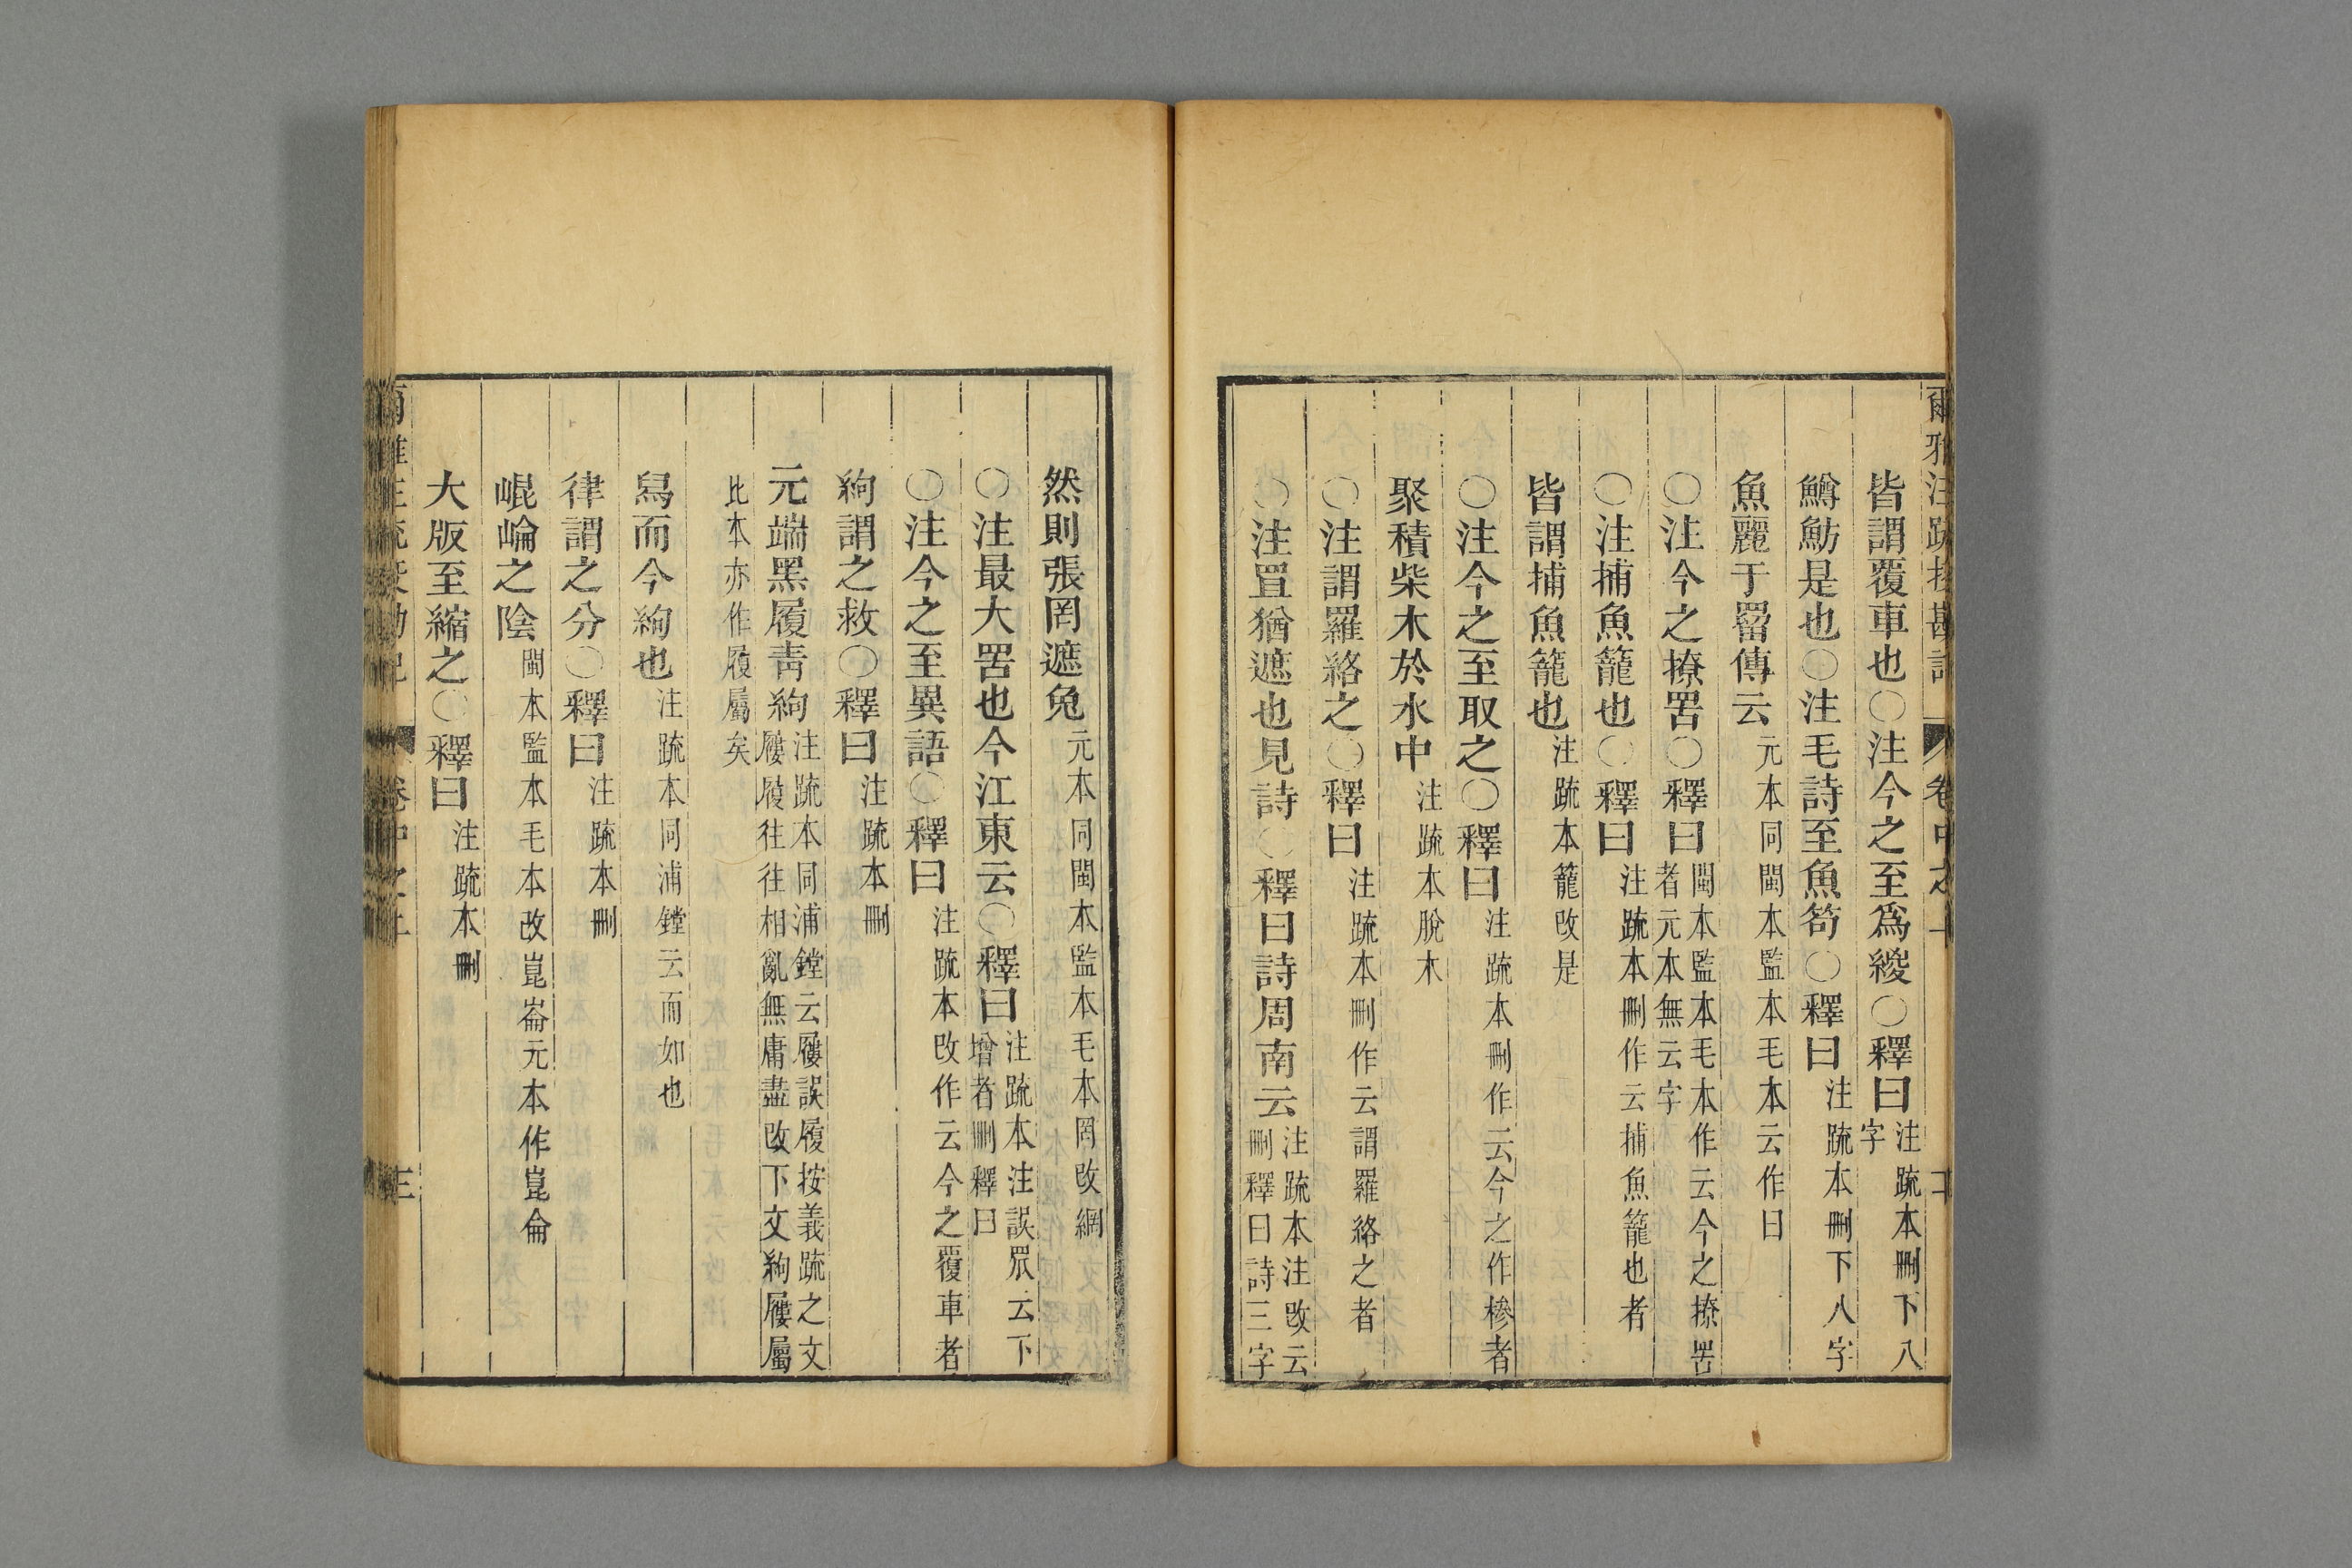 皆謂覆車也〇注今之至爲緵〇釋曰注疏本刪下八字
鱒魴是也〇注毛詩至魚笱〇釋曰注疏本刪下八字
魚麗于罶傳云元本同閩本監本毛本云作曰
〇注今之撩罟〇釋曰閩本監本毛本作云今之撩罟者元本無云字
〇注捕魚籠也〇釋曰注疏本刪作云捕魚籠也者
皆謂捕魚籠也注疏本籠改是
〇注今之至取之〇釋曰注疏本刪作云今之作槮者
聚積柴木於水中注疏本脫木
〇注謂羅絡之〇釋曰注疏本刪作云謂羅絡之者
〇注罝猶遮也見詩〇釋曰詩周南云注疏本注改云刪釋曰詩三字
然則張罔遮兔元本同閩本監本毛本罔改網
〇注最大罟也今江東云〇釋曰注疏本注誤眾云下增者刪釋曰
〇注今之至異語〇釋曰注疏本改作云今之覆車者
絇謂之救〇釋曰注疏本刪
元端黑履青絇注疏本同浦鏜云屨誤履按義疏之文屨履往往相亂無庸盡改下文絇屨屬
比本亦作履屬矣
舄而今絇也注疏本同浦鏜云而如也
律謂之分〇釋曰注疏本刪
崐崘之陰閩本監本毛本改崑崙元本作崑侖
大版至縮之〇釋曰注疏本刪
卷中之上
三